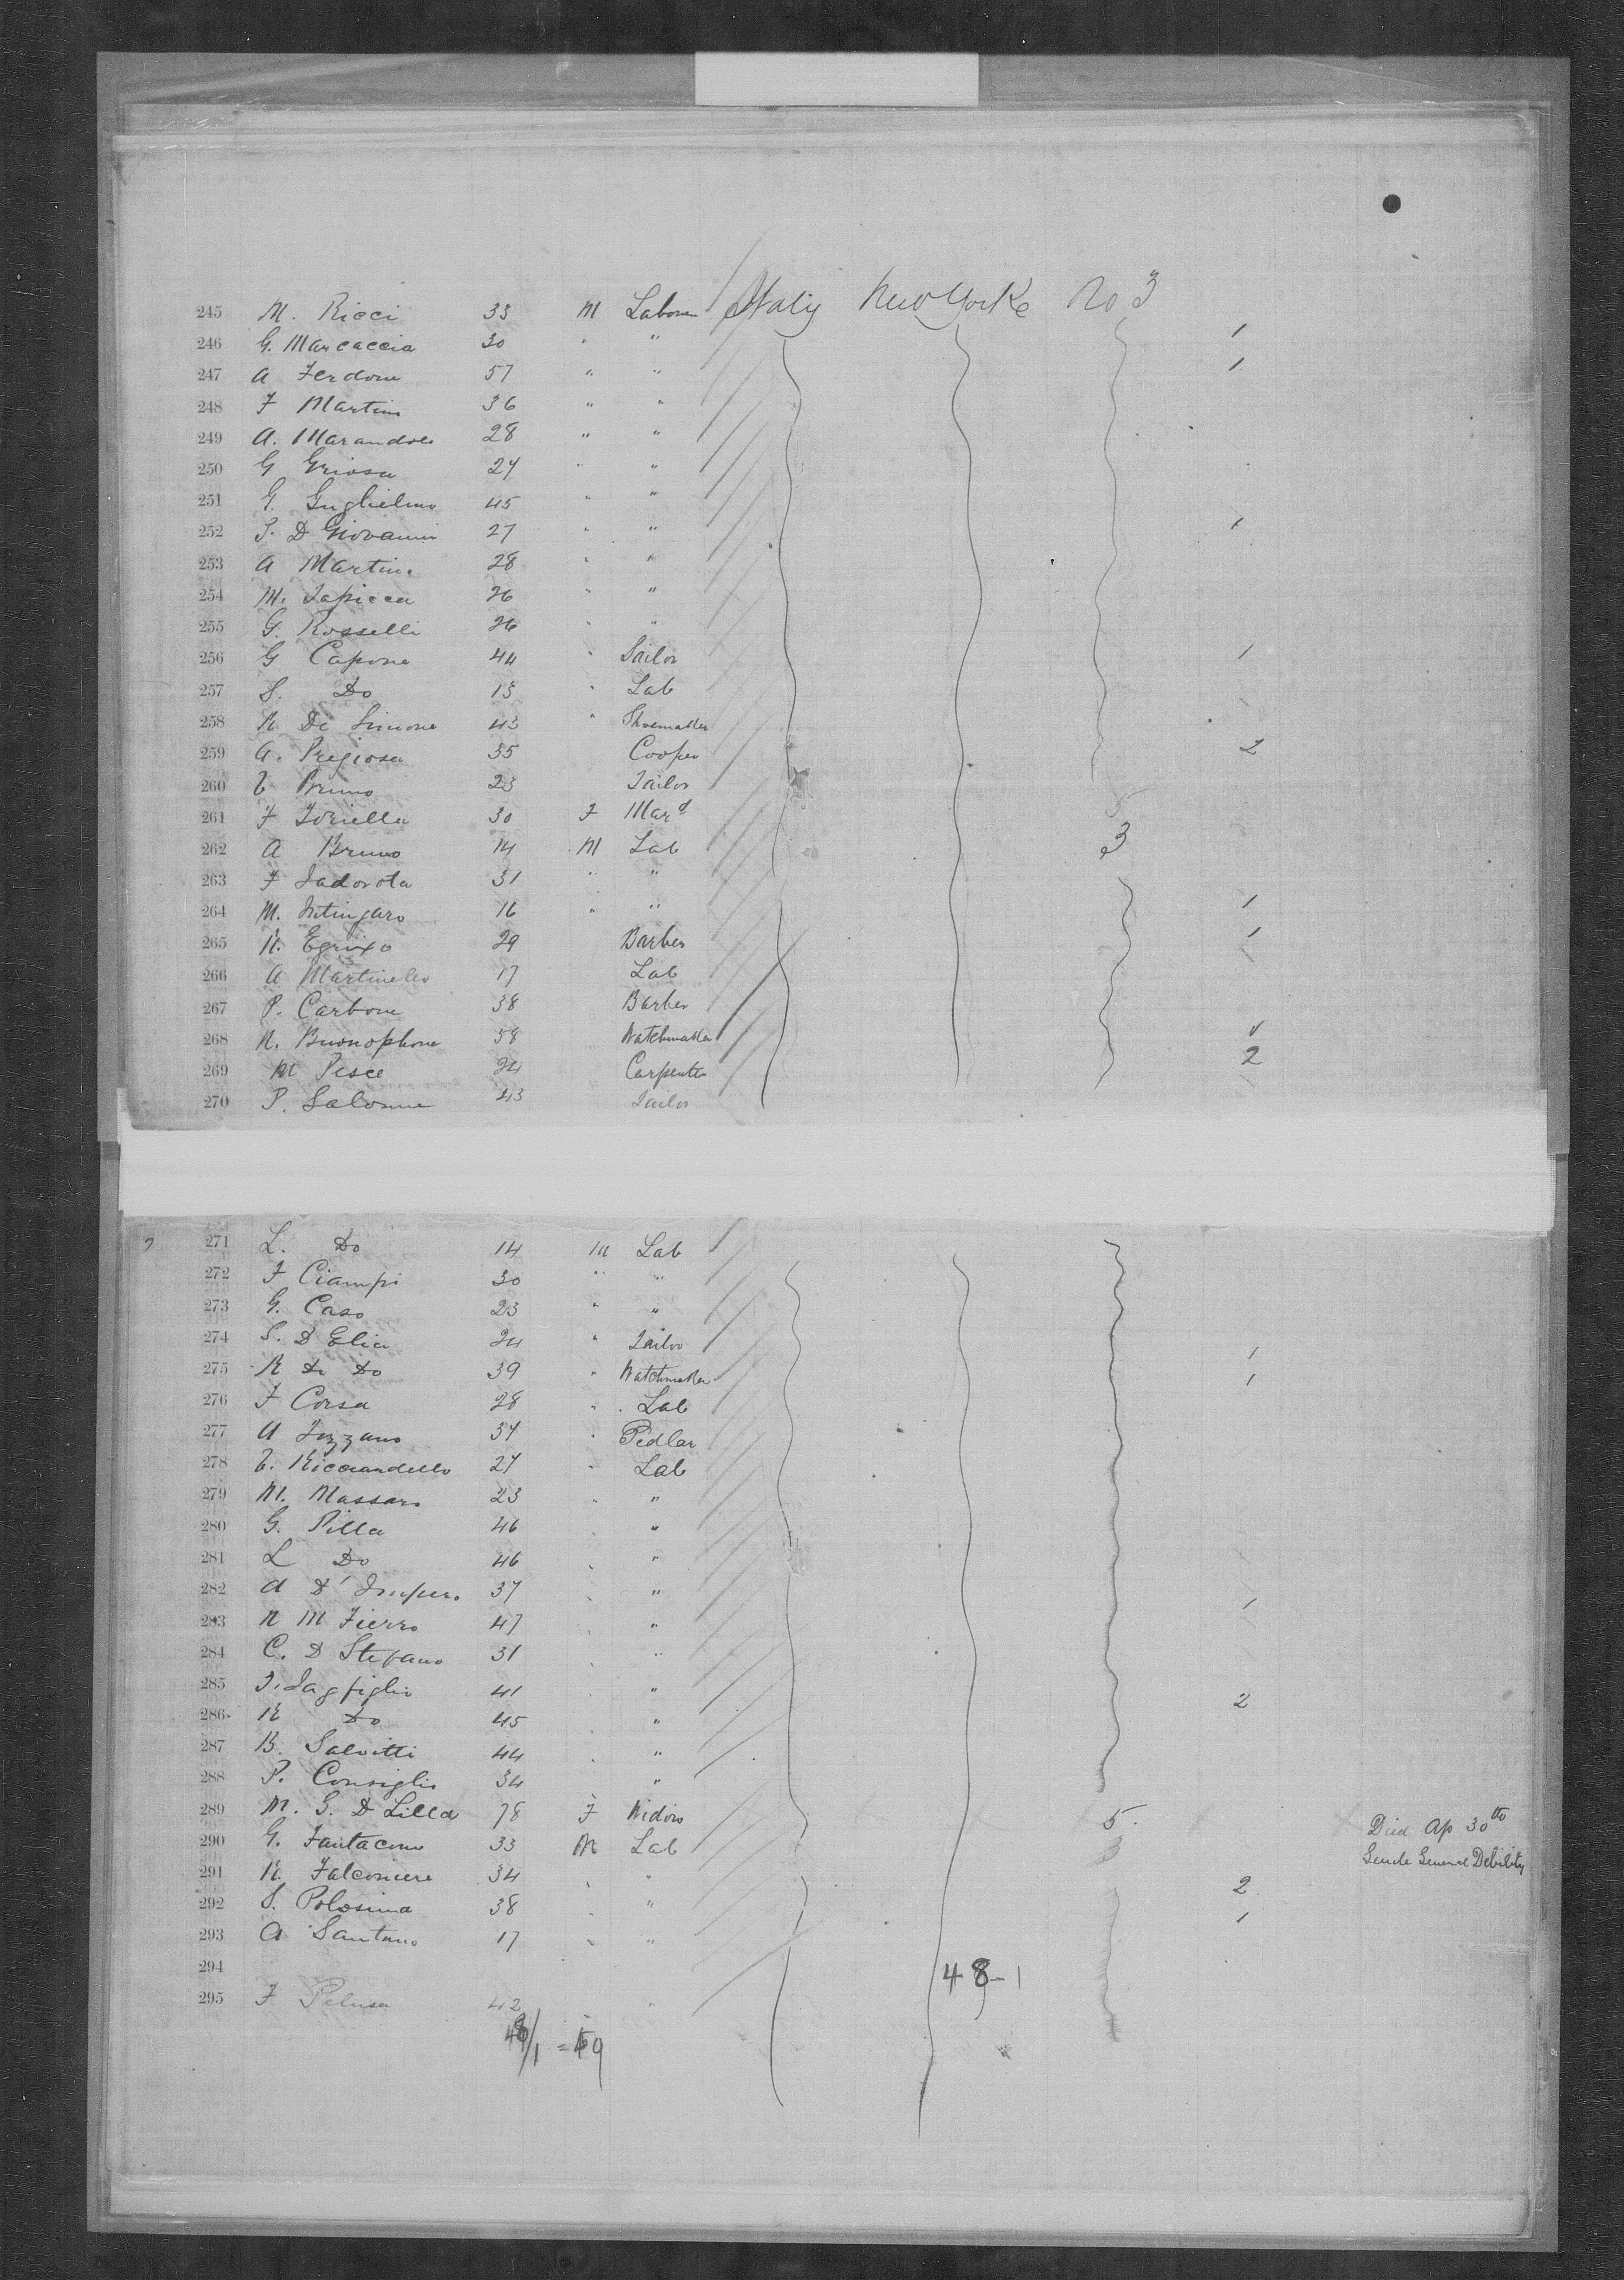 245 M. Ricci 33 M Laborer Italy New Yorke No 3
246 G. Marcaccia 30 " " 1
247 A Ferdone 57 " " 1
248 F Martino 36 " "
249 A. Marandola 28 " "
250 G Griosa 24 " "
251 G. Guglielmo 45 " "
252 S. D Giovanni 27 " " 1
253 A Martino 28 " "
254 M. 26 " "
255 G. Rosselli 26 " "
256 G Capone 44 " Sailor 1
257 S. Do 13 " Lab
258 N. De Simone 43 " Shoemaker
259 A. Pregiosa 35 Cooper 2
260 Bruno 23 Tailor
261 F 30 F Mard 5
262 A Bruno 14 M Lab 3
263 F 31 " "
264 M. 16 " " 1
265 29 Barber 1
266 A Martinello 17 Lab
267 P. Carbone 38 Barber
268 N. 58 Watchmaker 1
269 M Pesce 24 Carpenter 2
270 P. Salomne 43 Tailor
271 L. Do 14 M Lab
272 F Ciampi 30 " "
273 G. Caso 23 " "
274 S. D Elia 24 " Tailor 1
275 R De Do 39 " Watchmaker 1
276 F Corsa 28 " Lab
277 A 34 " Pedlar
278 Ricciardello 27 " Lab
279 M. Massaro 23 " "
280 G. Pilla 46 " "
281 L Do 46 " "
282 A D' Impero 37 " " 1
283 N M Fierro 47 " "
284 C. D Stefano 31 " "
285 41 " " 2
286 R Do 45 " "
287 B. Salvitti 44 " "
288 P. Consiglio 34 "
289 M. G. D Lilla 78 F Widow 5. Died Ap 30th
290 G. Fantacone 33 M Lab 3 Senile General Debility
291 N. Falconiere 34 " " 2
292 S. Polosima 38 " " 1
293 A Santoro 17 " "
294 48-1
295 F Pelusa 42 " "
48/1 = 49